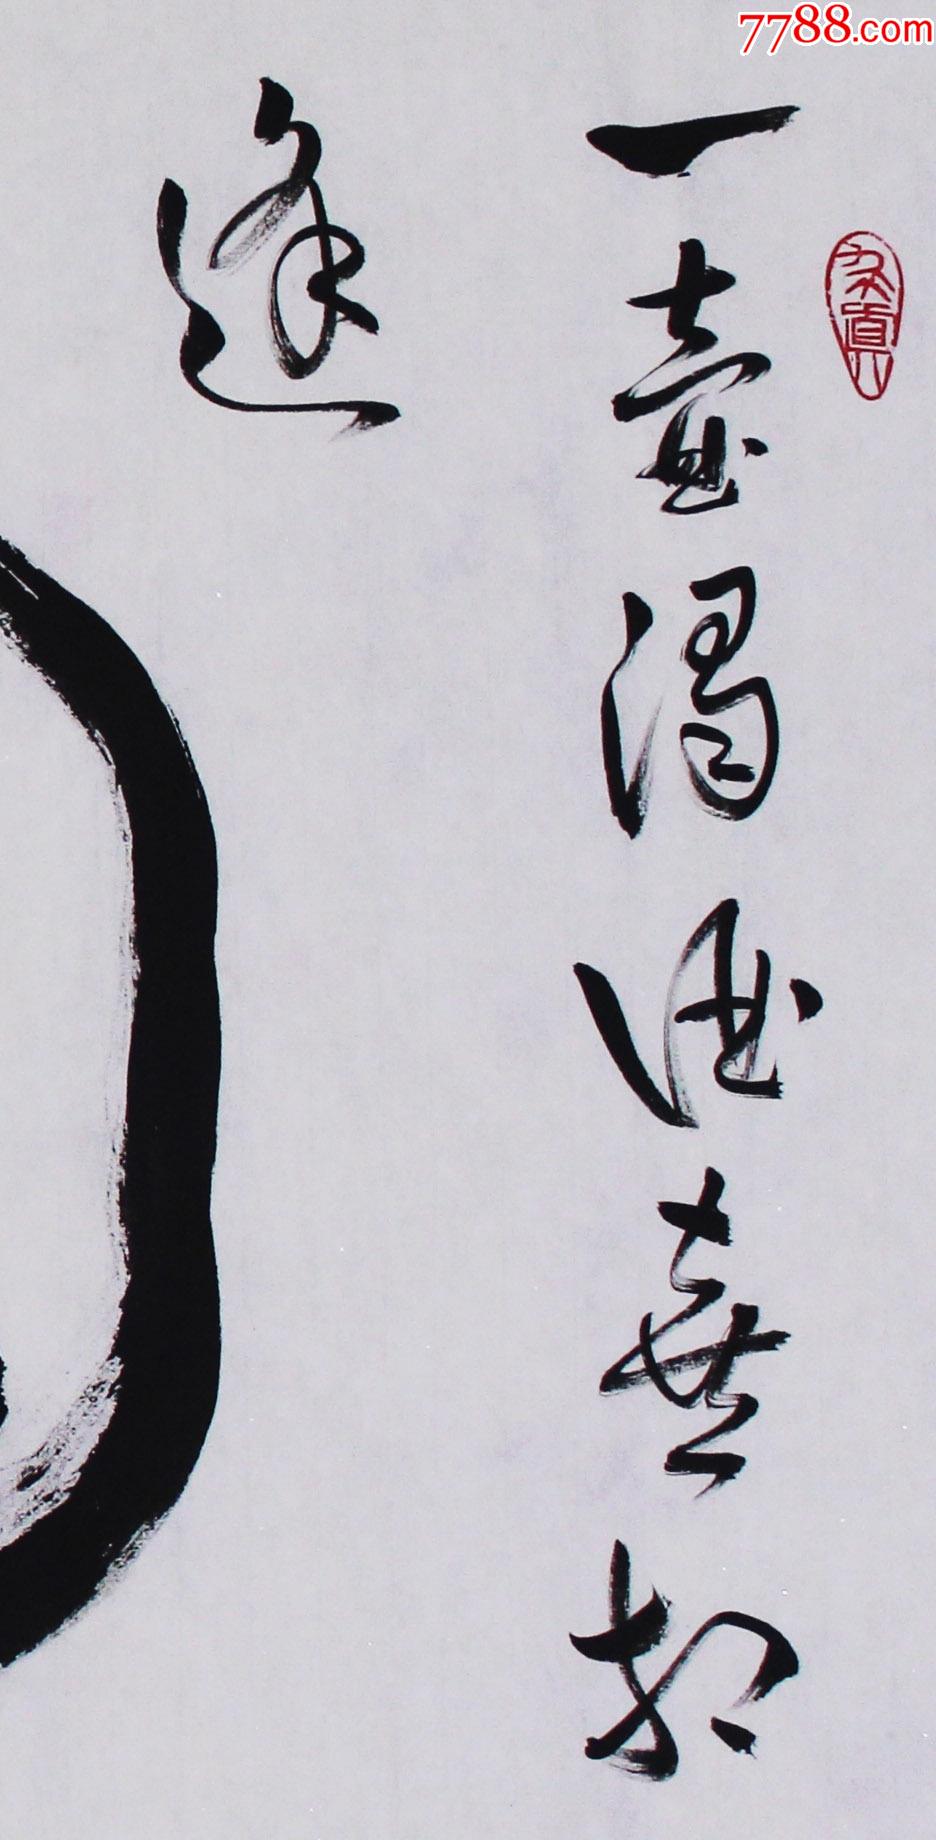 7788.com
一壺濁酒喜相
逢